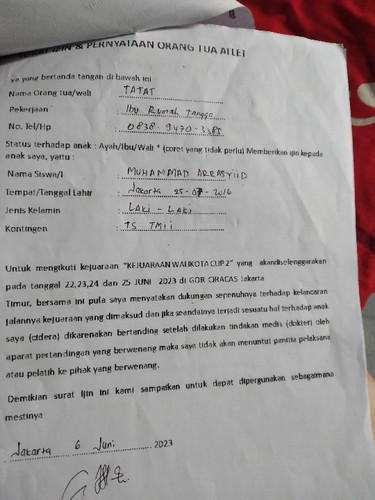 IZIN & PERNYATAAN ORANG TUA ATLET
ya yang bertanda tangan di bawah ini
Nama Orang Tua/wali : TATAT
Pekerjaan : Ibu Rumah Tangga
No. Tel/Hp : 0838-9470-3385
Status terhadap anak : Ayah/Ibu/Wali * (coret yang tidak perlu) Memberikan ijin kepada
anak saya, yaitu :
Nama Siswa/i : MUHAMMAD ARRASYIID
Tempat/Tanggal Lahir : Jakarta 25-07-2016
Jenis Kelamin : LAKi - LAKi
Kontingen : TS TMii
Untuk mengikuti kejuaraan "KEJUARAAN WALIKOTA CUP 2" yang akandiselenggarakan
pada tanggal 22,23,24 dan 25 JUNI 2023 di GOR CIRACAS Jakarta
Timur, bersama ini pula saya menyatakan dukungan sepenuhnya terhadap kelancaran
jalannya kejuaraan yang dimaksud dan jika seandainya terjadi sesuatu hal terhadap anak
saya (cidera) dikarenakan bertanding setelah dilakukan tindakan medis (dokter) oleh
aparat pertandingan yang berwenang maka saya tidak akan menuntut panitia pelaksana
atau pelatih ke pihak yang berwenang.
Demikian surat Ijin ini kami sampaikan untuk dapat dipergunakan sebagaimana
mestinya
Jakarta 6 Juni 2023